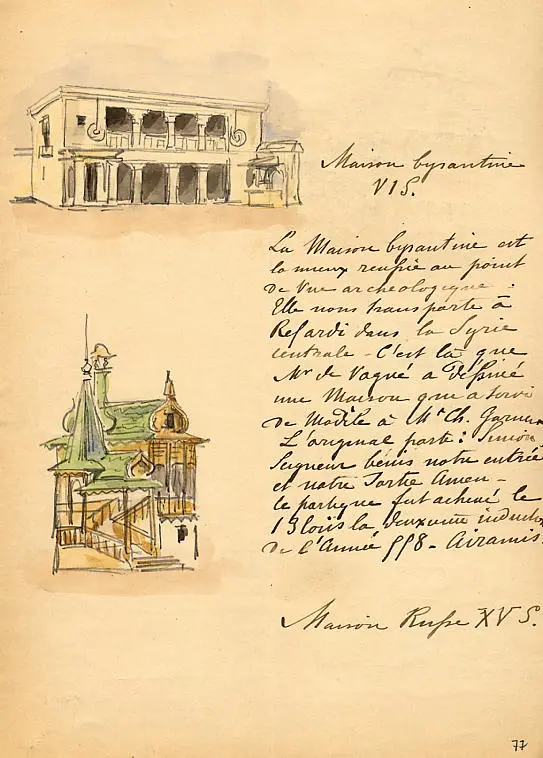 Maison byzantine
VI S.
La Maison byzantine est
la mieux reussie au point
de vue archeologique :
Elle nous transporte à
Refardi dans la Syrie
centrale - C'est là que
Mr de Vogué a dessiné
une Maison qui a servi
de Modèle à Mr Ch. Garnier
L'original porte : Simon
Seigneur bénis notre entrée
et notre Sortie Amen -
le portique fut achevé le
13 loüs la deuxieme
de l'Année 558 - Airamis.
Maison Russe XV S.
77